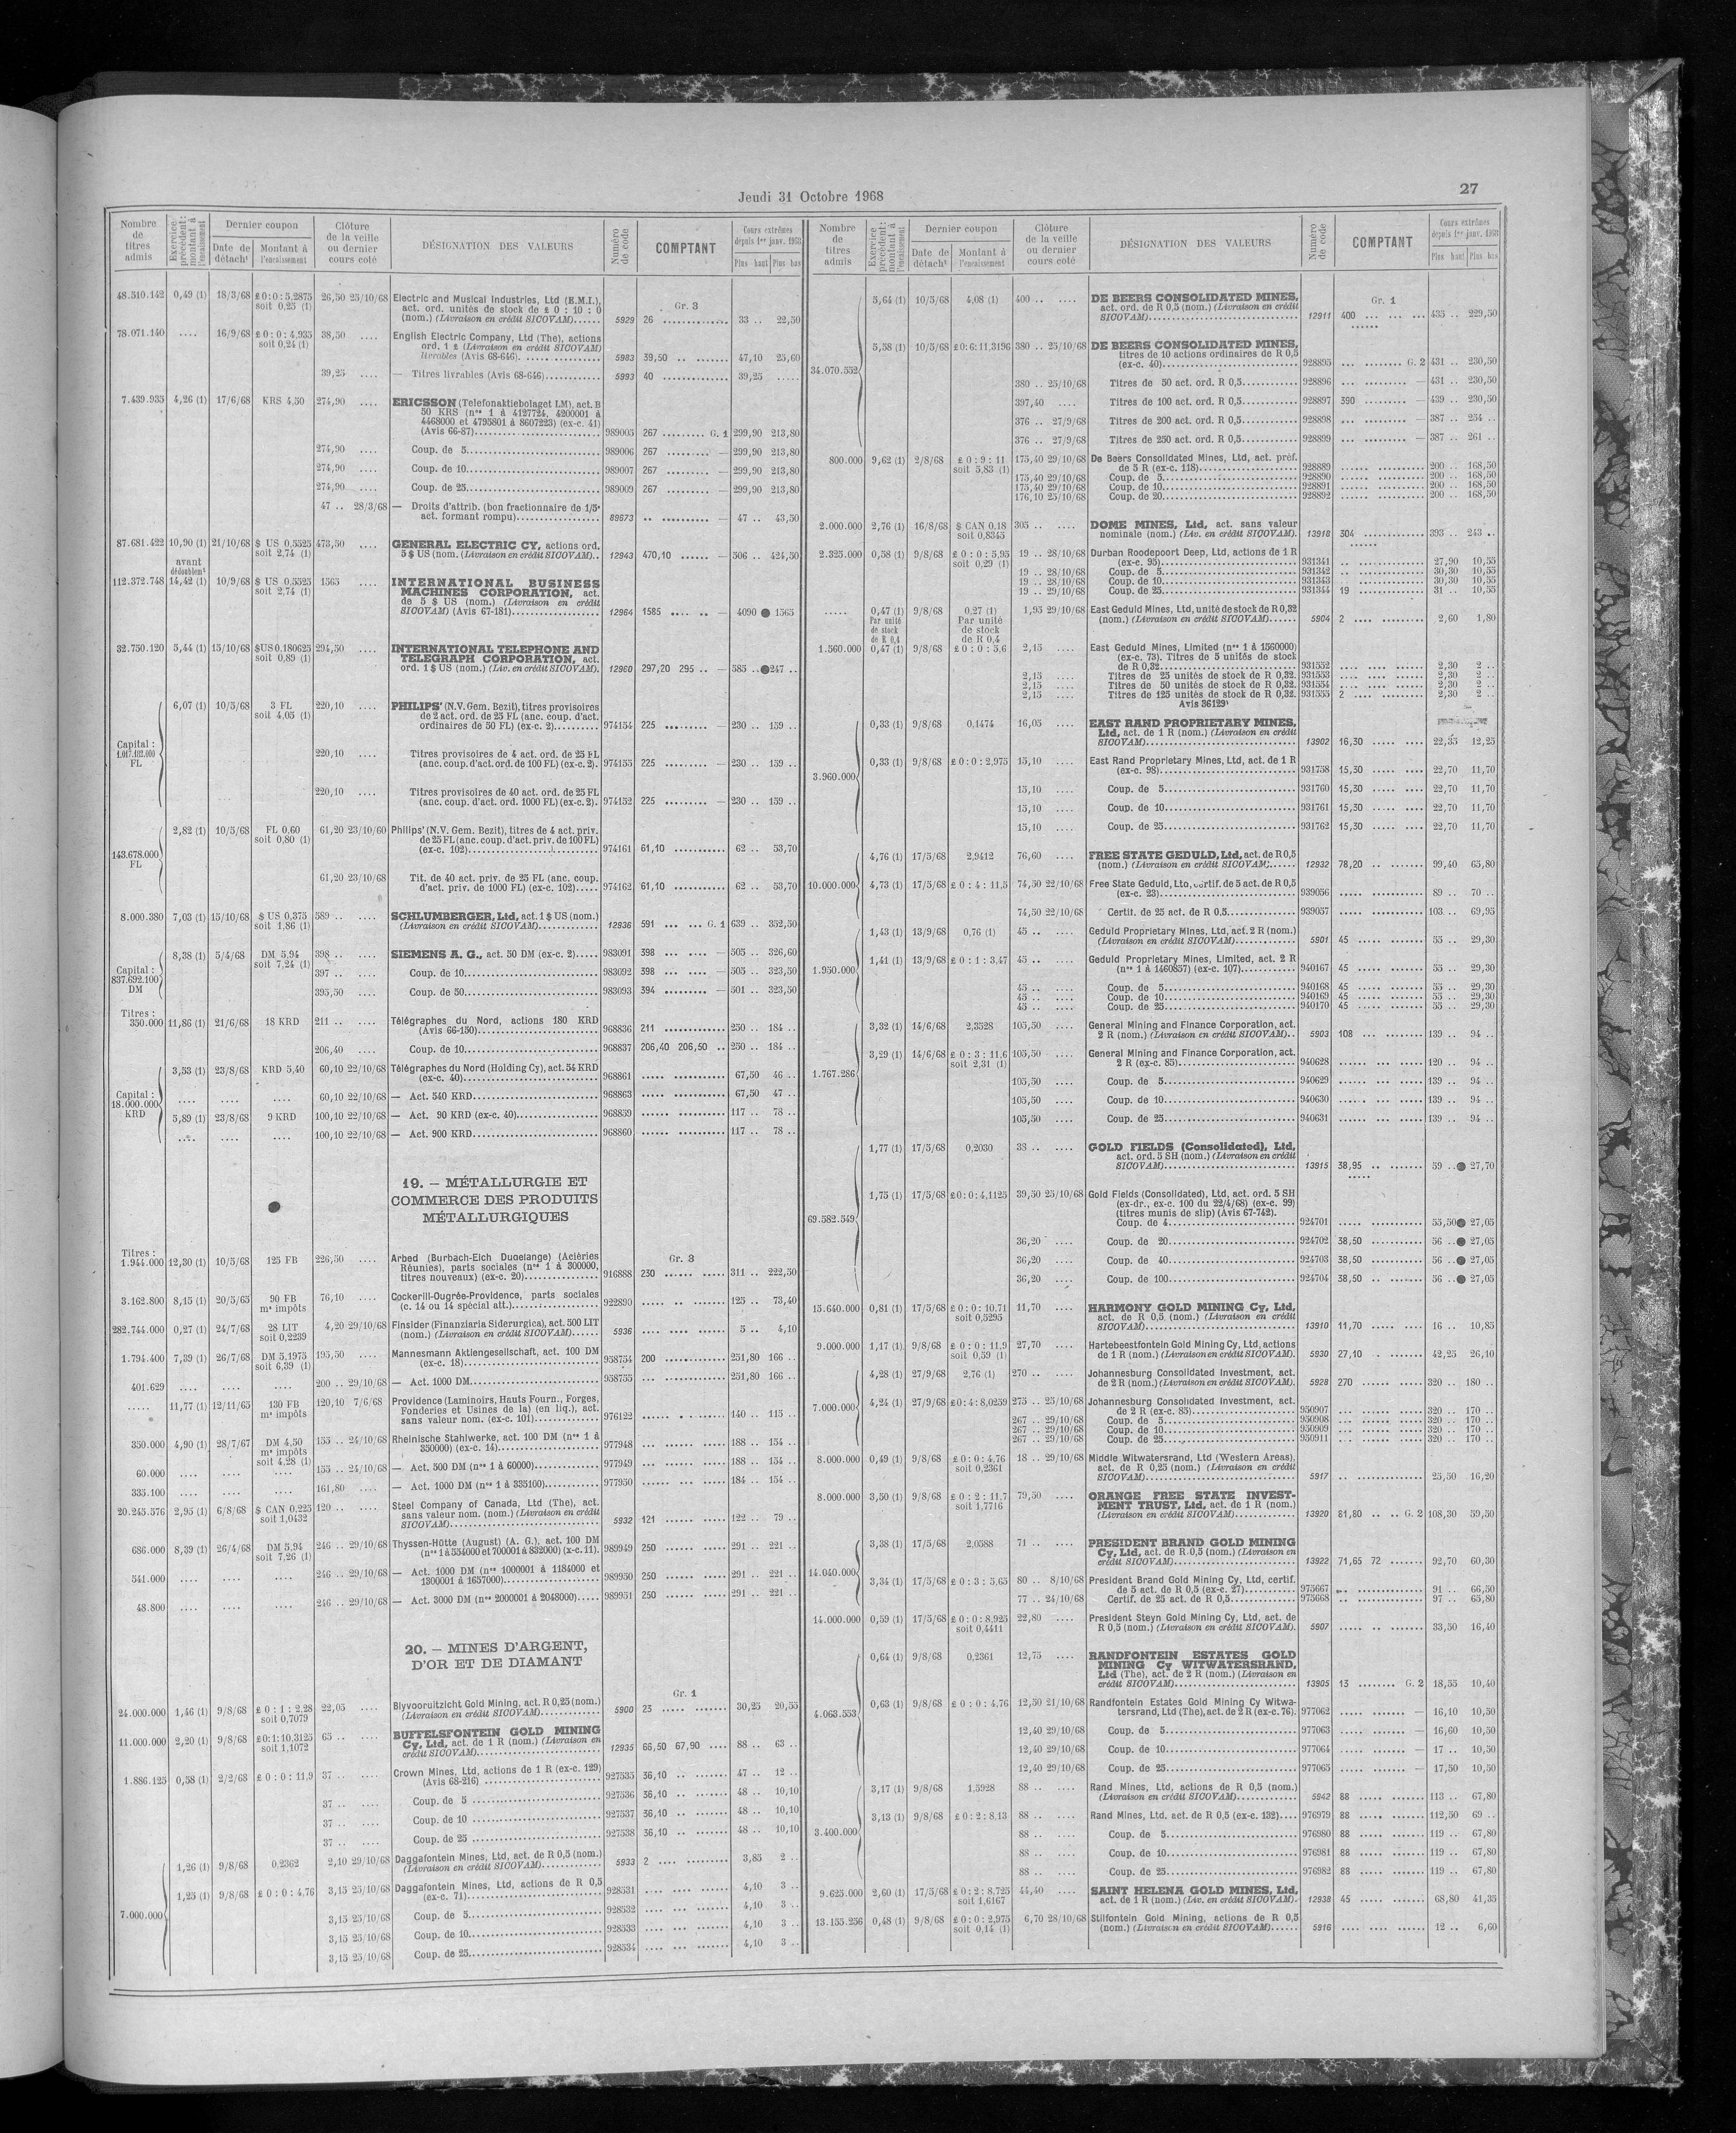 Jeudi 31 Octobre 1968
27
Nombre de titres admis
Exercice précédent: montant à l'encaissement
Dernier coupon
Date de détach¹
Montant à l'encaissement
Clôture de la veille ou dernier cours coté
DÉSIGNATION DES VALEURS
Numéro de code
COMPTANT
Cours extrêmes depuis 1er janv. 1968
Plus haut Plus bas
Gr. 3
48.510.142 0,49 (1) 18/3/68 £ 0:0:5,2875 soit 0,25 (1) 26,50 25/10/68 Electric and Musical Industries, Ltd (E.M.I.), act. ord. unités de stock de £ 0 : 10 : 0 (nom.) (Livraison en crédit SICOVAM)...... 5929 26 33 .. 22,50
78.071.140 .... 16/9/68 £ 0:0:4,935 soit 0,24 (1) 38,50 .... English Electric Company, Ltd (The), actions ord. 1 £ (Livraison en crédit SICOVAM) livrables (Avis 68-646). 5983 39,50 47,10 25,60
39,25 .... — Titres livrables (Avis 68-646)............ 5993 40 39,25 .....
7.439.935 4,26 (1) 17/6/68 KRS 4,50 274,90 .... ERICSSON (Telefonaktiebolaget LM), act. B 50 KRS (nos 1 à 4127724, 4200001 à 4468000 et 4795801 à 8607223) (ex-c. 41) (Avis 66-87) 989005 267 G. 1 299,90 213,80
274,90 .... Coup. de 5 989006 267 — 299,90 213,80
274,90 .... Coup. de 10 989007 267 — 299,90 213,80
274,90 .... Coup. de 25 989009 267 — 299,90 213,80
47 .. 28/3/68 — Droits d'attrib. (bon fractionnaire de 1/5e act. formant rompu) 89673 — 47 .. 43,50
87.681.422 10,90 (1) 21/10/68 $ US 0,5525 soit 2,74 (1) 473,50 .... GENERAL ELECTRIC CY, actions ord. 5 $ US (nom. (Livraison en crédit SICOVAM).. 12943 470,10 — 506 .. 424,50
avant dédoublemt
112.372.748 14,42 (1) 10/9/68 $ US 0,5525 soit 2,74 (1) 1565 .... INTERNATIONAL BUSINESS MACHINES CORPORATION, act. de 5 $ US (nom.) (Livraison en crédit SICOVAM) (Avis 67-181) 12964 1585 — 4090 ● 1565
32.750.120 5,44 (1) 15/10/68 $US 0.180625 soit 0,89 (1) 294,50 .... INTERNATIONAL TELEPHONE AND TELEGRAPH CORPORATION, act. ord. 1 $ US (nom.) (Liv. en crédit SICOVAM). 12980 297,20 295 .. — 585 ..●247 ..
Capital : 1.017.482.000 FL
6,07 (1) 10/5/68 3 FL soit 4,05 (1) 220,10 .... PHILIPS' (N.V. Gem. Bezit), titres provisoires de 2 act. ord. de 25 FL (anc. coup. d'act. ordinaires de 50 FL) (ex-c. 2) 974154 225 — 230 .. 159 ..
220,10 .... Titres provisoires de 4 act. ord. de 25 FL (anc. coup. d'act. ord. de 100 FL) (ex-c. 2). 974155 225 — 230 .. 159 ..
220,10 .... Titres provisoires de 40 act. ord. de 25 FL (anc. coup. d'act. ord. 1000 FL) (ex-c. 2). 974152 225 — 230 .. 159 ..
143.678.000 FL
2,82 (1) 10/5/68 FL 0,60 soit 0,80 (1) 61,20 23/10/60 Philips' (N.V. Gem. Bezit), titres de 4 act. priv. de 25 FL (anc. coup. d'act. priv. de 100 FL) (ex-c. 102) 974161 61,10 62 .. 53,70
61,20 23/10/68 Tit. de 40 act. priv. de 25 FL (anc. coup. d'act. priv. de 1000 FL) (ex-c. 102) 974162 61,10 62 .. 53,70
8.000.380 7,03 (1) 15/10/68 $ US 0,375 soit 1,86 (1) 589 .. .... SCHLUMBERGER, Ltd, act. 1 $ US (nom.) (Livraison en crédit SICOVAM) 12936 591 G. 1 639 .. 352,50
Capital : 837.692.100 DM
8,38 (1) 5/4/68 DM 5,94 soit 7,24 (1) 398 .. .... SIEMENS A. G., act. 50 DM (ex-c. 2) 983091 398 — 505 .. 326,60
397 .. .... Coup. de 10 983092 398 — 505 .. 323,50
395,50 .... Coup. de 50 983093 394 — 501 .. 323,50
Titres : 350.000 11,86 (1) 21/6/68 18 KRD 211 .. .... Télégraphes du Nord, actions 180 KRD (Avis 66-150) 968836 211 250 .. 184 ..
206,40 .... Coup. de 10 968837 206,40 206,50 .. 250 .. 184 ..
Capital : 18.000.000 KRD
3,53 (1) 23/8/68 KRD 5,40 60,10 22/10/68 Télégraphes du Nord (Holding Cy), act. 54 KRD (ex-c. 40) 968861 67,50 46 ..
.... .... .... 60,10 22/10/68 — Act. 540 KRD 968863 67,50 47 ..
5,89 (1) 23/8/68 9 KRD 100,10 22/10/68 — Act. 90 KRD (ex-c. 40) 968859 117 .. 78 ..
.... .... .... 100,10 22/10/68 — Act. 900 KRD 968860 117 .. 78 ..
19. — MÉTALLURGIE ET COMMERCE DES PRODUITS MÉTALLURGIQUES
Gr. 3
Titres : 1.944.000 12,30 (1) 10/5/68 125 FB 226,50 .... Arbed (Burbach-Eich Dudelange) (Aciéries Réunies), parts sociales (nos 1 à 300000, titres nouveaux) (ex-c. 20) 916888 230 311 .. 222,50
3.162.800 8,15 (1) 20/5/65 90 FB ms impôts 76,10 .... Cockerill-Ougrée-Providence, parts sociales (c. 14 ou 14 spécial att.) 922890 125 .. 73,40
282.744.000 0,27 (1) 24/7/68 28 LIT soit 0,2239 4,20 29/10/68 Finsider (Finanziaria Siderurgica), act. 500 LIT (nom.) (Livraison en crédit SICOVAM) 5936 5 .. 4,10
1.794.400 7,39 (1) 26/7/68 DM 5,1975 soit 6,39 (1) 195,50 .... Mannesmann Aktiengesellschaft, act. 100 DM (ex-c. 18) 958754 200 251,80 166 ..
401.629 .... .... .... 200 .. 29/10/68 — Act. 1000 DM 958755 251,80 166 ..
..... 11,77 (1) 12/11/65 130 FB ms impôts 120,10 7/6/68 Providence (Laminoirs, Hauts Fourn., Forges, Fonderies et Usines de la) (en liq.), act. sans valeur nom. (ex-c. 101) 976122 140 .. 115 ..
350.000 4,90 (1) 28/7/67 DM 4,50 ms impôts soit 4,28 (1) 155 .. 24/10/68 Rheinische Stahlwerke, act. 100 DM (nos 1 à 350000) (ex-c. 14) 977948 188 .. 154 ..
60.000 .... .... .... 155 .. 24/10/68 — Act. 500 DM (nos 1 à 60000) 977949 188 .. 154 ..
335.100 .... .... .... 161,80 .... — Act. 1000 DM (nos 1 à 335100) 977950 184 .. 154 ..
20.245.576 2,95 (1) 6/8/68 $ CAN 0,225 soit 1,0432 120 .. .... Steel Company of Canada, Ltd (The), act. sans valeur nom. (nom.) (Livraison en crédit SICOVAM) 5932 121 122 .. 79 ..
686.000 8,39 (1) 26/4/68 DM 5,94 soit 7,26 (1) 246 .. 29/10/68 Thyssen-Hütte (August) (A. G.), act. 100 DM (nos 1 à 554000 et 700001 à 832000) (x-c. 11). 989949 250 291 .. 221 ..
541.000 .... .... .... 246 .. 29/10/68 — Act. 1000 DM (nos 1000001 à 1184000 et 1300001 à 1657000) 989950 250 291 .. 221 ..
48.800 .... .... .... 246 .. 29/10/68 — Act. 3000 DM (nos 2000001 à 2048000) 989951 250 291 .. 221 ..
20. — MINES D'ARGENT, D'OR ET DE DIAMANT
Gr. 1
24.000.000 1,46 (1) 9/8/68 £ 0 : 1 : 2,28 soit 0,7079 22,05 .... Blyvooruitzicht Gold Mining, act. R 0,25 (nom.) (Livraison en crédit SICOVAM) 5900 23 30,25 20,55
11.000.000 2,20 (1) 9/8/68 £0:1:10,3125 soit 1,1072 65 .. .... BUFFELSFONTEIN GOLD MINING Cy, Ltd, act. de 1 R (nom.) (Livraison en crédit SICOVAM) 12935 66,50 67,90 .... 88 .. 63 ..
1.886.125 0,58 (1) 2/2/68 £ 0 : 0 : 11,9 37 .. .... Crown Mines, Ltd, actions de 1 R (ex-c. 129) (Avis 68-216) 927535 36,10 47 .. 12 ..
37 .. .... Coup. de 5 927536 36,10 48 .. 10,10
37 .. .... Coup. de 10 927537 36,10 48 .. 10,10
37 .. .... Coup. de 25 927538 36,10 48 .. 10,10
7.000.000
1,26 (1) 9/8/68 0,2362 2,10 29/10/68 Daggafontein Mines, Ltd, act. de R 0,5 (nom.) (Livraison en crédit SICOVAM) 5933 2 3,85 2 ..
1,25 (1) 9/8/68 £ 0 : 0 : 4,76 3,15 25/10/68 Daggafontein Mines, Ltd, actions de R 0,5 (ex-c. 71) 928531 4,10 3 ..
3,15 25/10/68 Coup. de 5 928532 4,10 3 ..
3,15 25/10/68 Coup. de 10 928533 4,10 3 ..
3,15 25/10/68 Coup. de 25 928534 4,10 3 ..
Nombre de titres admis
Exercice précédent: montant à l'encaissement
Dernier coupon
Date de détach¹
Montant à l'encaissement
Clôture de la veille ou dernier cours coté
DÉSIGNATION DES VALEURS
Numéro de code
COMPTANT
Cours extrêmes depuis 1er janv. 1968
Plus haut Plus bas
Gr. 1
34.070.552
5,64 (1) 10/5/68 4,08 (1) 400 .. .... DE BEERS CONSOLIDATED MINES, act. ord. de R 0,5 (nom.) (Livraison en crédit SICOVAM) 12911 400 435 .. 229,50
5,58 (1) 10/5/68 £0:6:11,3196 380 .. 25/10/68 DE BEERS CONSOLIDATED MINES, titres de 10 actions ordinaires de R 0,5 (ex-c. 40) 928895 G. 2 431 .. 230,50
380 .. 25/10/68 Titres de 50 act. ord. R 0,5 928896 — 431 .. 230,50
397,40 .... Titres de 100 act. ord. R 0,5 928897 390 — 439 .. 230,50
376 .. 27/9/68 Titres de 200 act. ord. R 0,5 928898 — 387 .. 254 ..
376 .. 27/9/68 Titres de 250 act. ord. R 0,5 928899 — 387 .. 261 ..
800.000 9,62 (1) 2/8/68 £ 0 : 9 : 11 soit 5,83 (1) 175,40 29/10/68 De Beers Consolidated Mines, Ltd, act. préf. de 5 R (ex-c. 118) 928889 200 .. 168,50
175,40 29/10/68 Coup. de 5 928890 200 .. 168,50
175,40 29/10/68 Coup. de 10 928891 200 .. 168,50
176,10 25/10/68 Coup. de 20 928892 200 .. 168,50
2.000.000 2,76 (1) 16/8/68 $ CAN 0.18 soit 0,8345 305 .. .... DOME MINES, Ltd, act. sans valeur nominale (nom.) (Liv. en crédit SICOVAM). 13918 304 393 .. 243 ..
2.325.000 0,58 (1) 9/8/68 £ 0 : 0 : 5,95 soit 0,29 (1) 19 .. 28/10/68 Durban Roodepoort Deep, Ltd, actions de 1 R (ex-c. 95) 931341 27,90 10,55
19 .. 28/10/68 Coup. de 5 931342 30,30 10,55
19 .. 28/10/68 Coup. de 10 931343 30,30 10,55
19 .. 29/10/68 Coup. de 25 931344 19 31 .. 10,55
..... 0,47 (1) Par unité de stock de R 0,4 9/8/68 0,27 (1) Par unité de stock de R 0,4 1,95 29/10/68 East Geduld Mines, Ltd, unité de stock de R 0,32 (nom.) (Livraison en crédit SICOVAM) 5904 2 2,60 1,80
1.560.000 0,47 (1) 9/8/68 £ 0 : 0 : 5,6 2,15 .... East Geduld Mines, Limited (nos 1 à 1560000) (ex-c. 73). Titres de 5 unités de stock de R 0,32 931552 2,30 2 ..
2,15 .... Titres de 25 unités de stock de R 0,32. 931553 2,30 2 ..
2,15 .... Titres de 50 unités de stock de R 0,32. 931554 2,30 2 ..
2,15 .... Titres de 125 unités de stock de R 0,32. 931555 2 2,30 2 ..
Avis 36129¹
3.960.000
0,33 (1) 9/8/68 0,1474 16,05 .... EAST RAND PROPRIETARY MINES, Ltd, act. de 1 R (nom.) (Livraison en crédit SICOVAM) 13902 16,30 22,35 12,25
0,33 (1) 9/8/68 £ 0 : 0 : 2,975 15,10 .... East Rand Proprietary Mines, Ltd, act. de 1 R (ex-c. 98) 931758 15,30 22,70 11,70
15,10 .... Coup. de 5 931760 15,30 22,70 11,70
15,10 .... Coup. de 10 931761 15,30 22,70 11,70
15,10 .... Coup. de 25 931762 15,30 22,70 11,70
4,76 (1) 17/5/68 2,9412 76,60 .... FREE STATE GEDULD, Ltd, act. de R 0,5 (nom.) (Livraison en crédit SICOVAM) 12932 78,20 99,40 65,80
10.000.000 4,73 (1) 17/5/68 £ 0 : 4 : 11,5 74,50 22/10/68 Free State Geduld, Ltd, certif. de 5 act. de R 0,5 (ex-c. 23) 939056 89 .. 70 ..
74,50 22/10/68 Certit. de 25 act. de R 0,5 939057 103 .. 69,95
1.950.000
1,43 (1) 13/9/68 0,76 (1) 45 .. .... Geduld Proprietary Mines, Ltd, act. 2 R (nom.) (Livraison en crédit SICOVAM) 5901 45 55 .. 29,30
1,41 (1) 13/9/68 £ 0 : 1 : 3,47 45 .. .... Geduld Proprietary Mines, Limited, act. 2 R (nos 1 à 1460857) (ex-c. 107) 940167 45 55 .. 29,30
45 .. .... Coup. de 5 940168 45 55 .. 29,30
45 .. .... Coup. de 10 940169 45 55 .. 29,30
45 .. .... Coup. de 25 940170 45 55 .. 29,30
1.767.286
3,32 (1) 14/6/68 2,3528 105,50 .... General Mining and Finance Corporation, act. 2 R (nom.) (Livraison en crédit SICOVAM).. 5903 108 139 .. 94 ..
3,29 (1) 14/6/68 £ 0 : 3 : 11,6 soit 2,31 (1) 105,50 .... General Mining and Finance Corporation, act. 2 R (ex-c. 85) 940628 120 .. 94 ..
105,50 .... Coup. de 5 940629 139 .. 94 ..
105,50 .... Coup. de 10 940630 139 .. 94 ..
105,50 .... Coup. de 25 940631 139 .. 94 ..
69.582.549
1,77 (1) 17/5/68 0,2030 38 .. .... GOLD FIELDS (Consolidated), Ltd, act. ord. 5 SH (nom.) (Livraison en crédit SICOVAM) 13915 38,95 59 ..● 27,70
1,75 (1) 17/5/68 £0:0:4,1125 39,50 25/10/68 Gold Fields (Consolidated), Ltd, act. ord. 5 SH (ex-dr., ex-c. 100 du 22/4/68) (ex-c. 99) (titres munis de slip) (Avis 67-742). Coup. de 4 924701 55,50● 27,05
36,20 .... Coup. de 20 924702 38,50 56 ..● 27,05
36,20 .... Coup. de 40 924703 38,50 56 ..● 27,05
36,20 .... Coup. de 100 924704 38,50 56 ..● 27,05
15.640.000 0,81 (1) 17/5/68 £ 0 : 0 : 10.71 soit 0,5295 11,70 .... HARMONY GOLD MINING Cy, Ltd, act. de R 0,5 (nom.) (Livraison en crédit SICOVAM) 13910 11,70 16 .. 10,85
9.000.000 1,17 (1) 9/8/68 £ 0 : 0 : 11,9 soit 0,59 (1) 27,70 .... Hartebeestfontein Gold Mining Cy, Ltd, actions de 1 R (nom.) (Livraison en crédit SICOVAM). 5930 27,10 42,25 26,10
7.000.000
4,28 (1) 27/9/68 2,76 (1) 270 .. .... Johannesburg Consolidated Investment, act. de 2 R (nom.) (Livraison en crédit SICOVAM). 5928 270 320 .. 180 ..
4,24 (1) 27/9/68 £0:4:8,0259 275 .. 25/10/68 Johannesburg Consolidated Investment, act. de 2 R (ex-c. 85) 950907 320 .. 170 ..
267 .. 29/10/68 Coup. de 5 950908 320 .. 170 ..
267 .. 29/10/68 Coup. de 10 950909 320 .. 170 ..
267 .. 29/10/68 Coup. de 25 950911 320 .. 170 ..
8.000.000 0,49 (1) 9/8/68 £ 0 : 0 : 4,76 soit 0,2361 18 .. 29/10/68 Middle Witwatersrand, Ltd (Western Areas), act. de R 0,25 (nom.) (Livraison en crédit SICOVAM) 5917 25,50 16,20
8.000.000 3,50 (1) 9/8/68 £ 0 : 2 : 11,7 soit 1,7716 79,50 .... ORANGE FREE STATE INVESTMENT TRUST, Ltd, act. de 1 R (nom.) (Livraison en crédit SICOVAM) 13920 81,80 G. 2 108,30 59,50
14.040.000
3,38 (1) 17/5/68 2,0588 71 .. .... PRESIDENT BRAND GOLD MINING Cy, Ltd, act. de R 0,5 (nom.) (Livraison en crédit SICOVAM) 13922 71,65 72 92,70 60,30
3,34 (1) 17/5/68 £ 0 : 3 : 5,65 80 .. 8/10/68 President Brand Gold Mining Cy, Ltd, certif. de 5 act. de R 0,5 (ex-c. 27) 975667 91 .. 66,50
77 .. 24/10/68 Certif. de 25 act. de R 0,5 975668 97 .. 65,80
14.000.000 0,59 (1) 17/5/68 £ 0 : 0 : 8,925 soit 0,4411 22,80 .... President Steyn Gold Mining Cy, Ltd, act. de R 0,5 (nom.) (Livraison en crédit SICOVAM). 5907 33,50 16,40
4.063.553
0,64 (1) 9/8/68 0,2361 12,75 .... RANDFONTEIN ESTATES GOLD MINING Cy WITWATERSRAND, Ltd (The), act. de 2 R (nom.) (Livraison en crédit SICOVAM) 13905 13 G. 2 18,55 10,40
0,63 (1) 9/8/68 £ 0 : 0 : 4,76 12,50 21/10/68 Randfontein Estates Gold Mining Cy Witwatersrand, Ltd (The), act. de 2 R (ex-c. 76). 977062 — 16,10 10,50
12,40 29/10/68 Coup. de 5 977063 — 16,60 10,50
12,40 29/10/68 Coup. de 10 977064 — 17 .. 10,50
12,40 29/10/68 Coup. de 25 977065 — 17,50 10,50
3.400.000
3,17 (1) 9/8/68 1,5928 88 .. .... Rand Mines, Ltd, actions de R 0,5 (nom.) (Livraison en crédit SICOVAM) 5942 88 113 .. 67,80
3,13 (1) 9/8/68 £ 0 : 2 : 8.13 88 .. .... Rand Mines, Ltd. act. de R 0,5 (ex-c. 132) 976979 88 112,50 69 ..
88 .. .... Coup. de 5 976980 88 119 .. 67,80
88 .. .... Coup. de 10 976981 88 119 .. 67,80
88 .. .... Coup. de 25 976982 88 119 .. 67,80
9.625.000 2,60 (1) 17/5/68 £ 0 : 2 : 8,725 soit 1,6167 44,40 .... SAINT HELENA GOLD MINES, Ltd, act. de 1 R (nom.) (Liv. en crédit SICOVAM). 12938 45 68,80 41,35
13.155.256 0,48 (1) 9/8/68 £ 0 : 0 : 2,975 soit 0,14 (1) 6,70 28/10/68 Stilfontein Gold Mining, actions de R 0,5 (nom.) (Livraison en crédit SICOVAM) 5916 12 .. 6,60